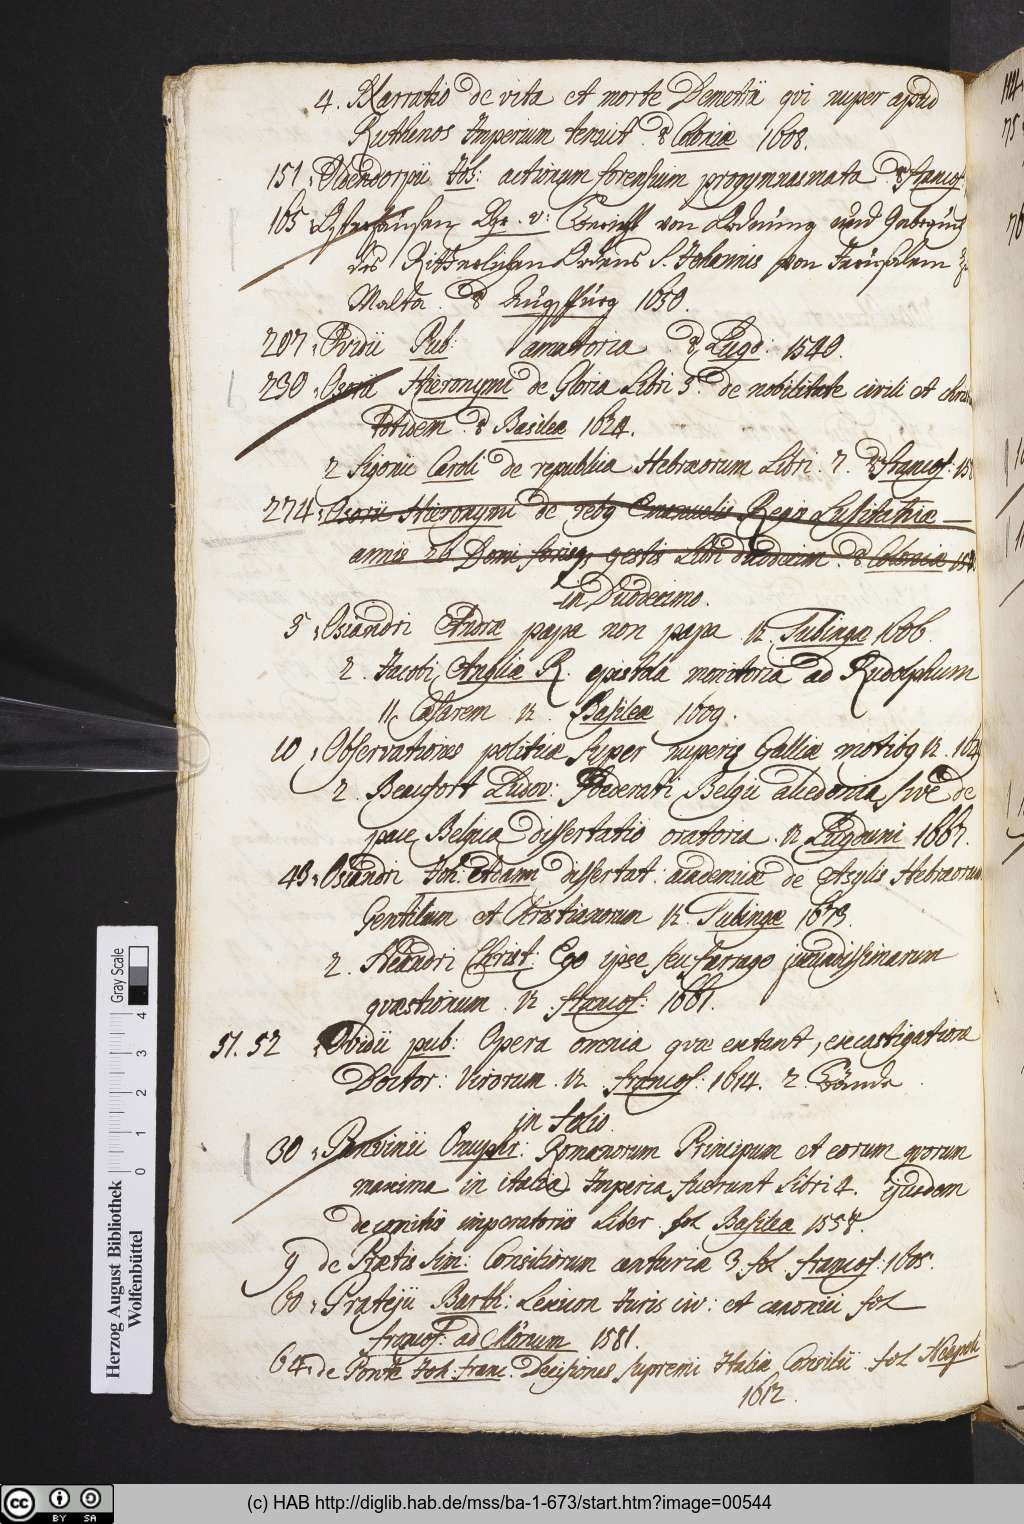 4. Narratio de vita et morte Demetrii qvi nuper apud
Ruthenos Imperium tenuit. 8 Coloniæ 1608.
151. Oldendorpii Joh: actionum forensium progymnasmata. 8 francof
165 Osterhausen Chr. v: Bericht von Ordnung und Gebräuch
des Ritterlichen Ordens S. Johannis von Jerusalem zu
Malta. 8 Augspurg 1650.
207. Ovidii Pub: amatoria. 8 Lugd: 1540.
230. Osorii Hieronymi de Gloria Libri 5. de nobilitate civili et
totidem. 8 Basileæ 1624.
2 Sigonii Caroli de republica Hebræorum Libri. 7. 8 francof: 15
274. Osorii Hieronymi de rebg Emanuelis Regis Lusitaniæ
annis 26 Domi forisq gestis Libri duodecim. 8 Coloniæ 15
in Duodecimo.
5. Osiandri Andræ papa non papa. 12. Tubingæ 1606.
2. Jacobi Angliæ R. epistola monitoria ad Rudolphum
II Cæsarem 12 Basileæ 1609.
10. Observationes politicæ super nuperis Galliæ motibg 12. 162
2. Beaufort Ludov: foederati Belgii alcedonia, sive de
pace Belgica dissertatio oratoria. 12 Lugduni 1667.
43. Osiandri Joh: Adami dissertat: academicæ de Asylis Hebræorum
Gentilium et Christianorum 12. Tubingæ 1673.
2. Neandri Christ: Ego ipse seu farrago jucundissimarum
quæstionum. 12. francof: 1681.
51. 52 Ovidii pub: Opera omnia quæ extant, ex castigatione
Doctor: virorum. 12 francof: 1614. 2. Bände
in folio.
30. Panvinii Onuphr: Romanorum Principum et eorum qvorum
maxima in italia Imperia fuerunt Libri 4. ejusdem
de comitiis imperatoriis Liber. fol Basileæ 1558.
9 de Prætis Sim: Consiliorum centuriæ 3 fol francof: 1605.
60. Prateji Barth: Lexicon Juris civ: et canonici fol
francof: ad Mœnum 1581.
64. de Ponte Joh: franc. Decisiones supremi Italiæ Consilii fol Neapoli
1612.
Herzog August Bibliothek
Wolfenbüttel
0 1 2 3 4
Gray Scale
(c) HAB http://diglib.hab.de/mss/ba-1-673/start.htm?image=00544
CC BY SA